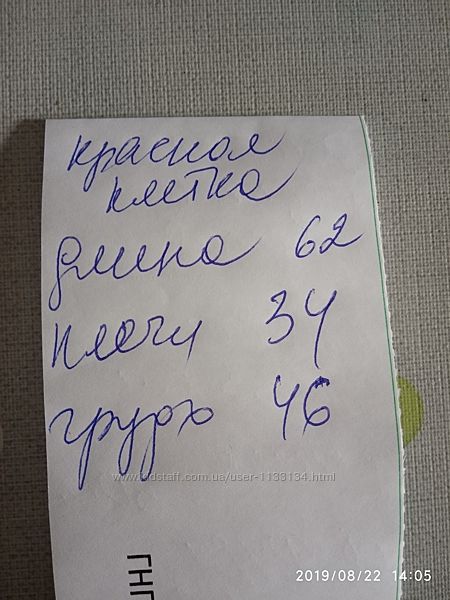 красная
клетка
длина 62
плечи 34
грудь 46
www.kidstaff.com.ua/user-1133134.html
ГНГ
2019/08/22 14:05